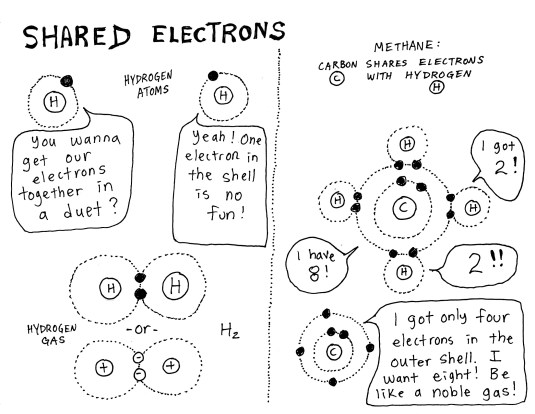 SHARED ELECTRONS
HYDROGEN
ATOMS
H
H
You wanna
get our
electrons
together in
a duet?
Yeah! One
electron in
the shell
is no
fun!
H
H
HYDROGEN
GAS
-or-
H2
+
-
-
+
METHANE:
CARBON SHARES ELECTRONS
C WITH HYDROGEN
H
H
I got
2!
H
C
H
I have
8!
H
2!!
C
I got only four
electrons in the
outer shell. I
want eight! Be
like a noble gas!